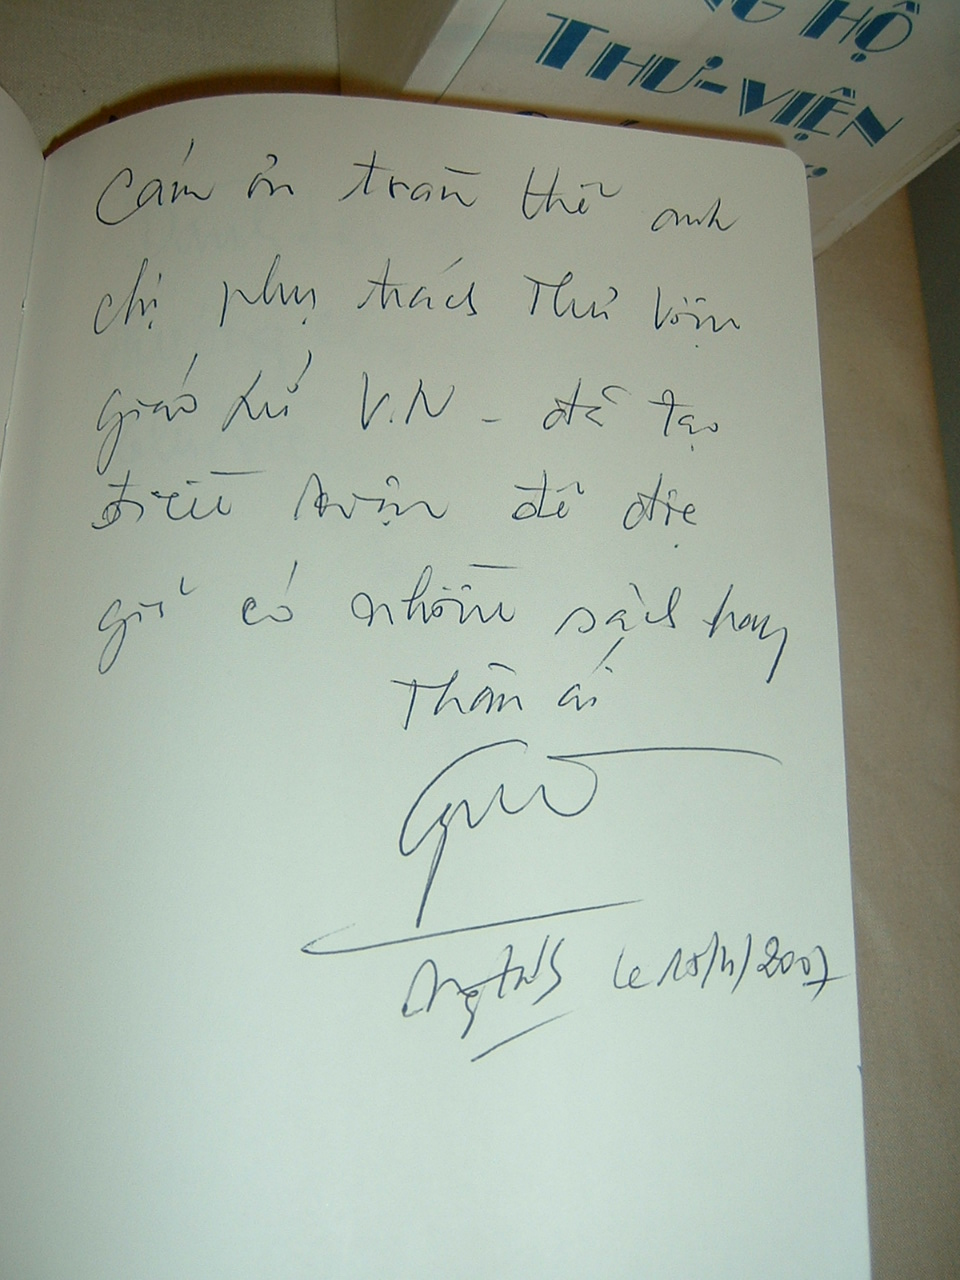 HỘ
THƯ-VIỆN
Cám ơn toàn thể anh
chị phụ trách Thư Viện
giáo xứ V.N - đã tạo
điều kiện để độc
giả có nhiều sách hay
Thân ái
le 15/4/2007